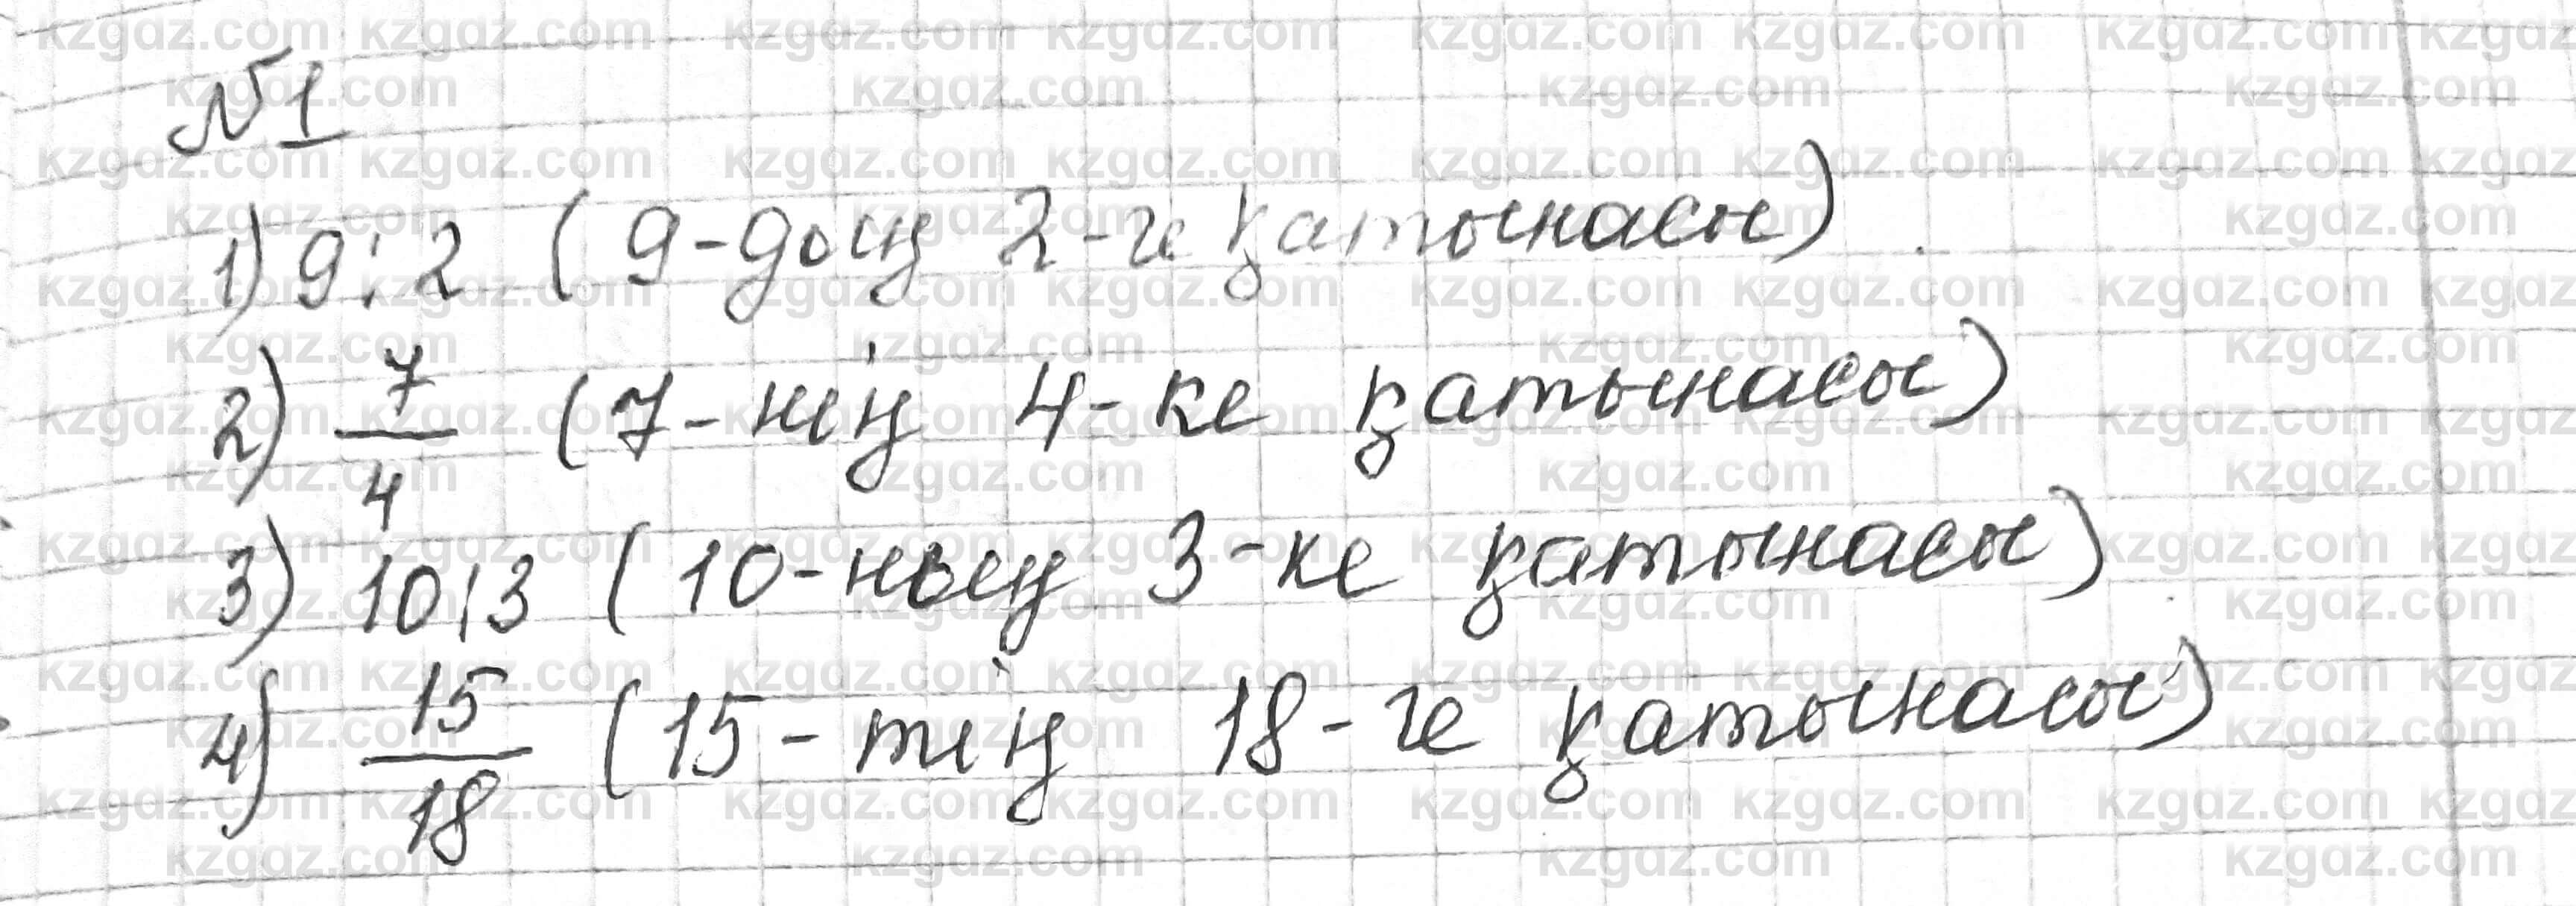 №1
1) 9:2 (9-дың 2-ге қатынасы)
2) 7/4 (7-нің 4-ке қатынасы)
3) 10:3 (10-ның 3-ке қатынасы)
4) 15/18 (15-тің 18-ге қатынасы)
kzgdz.com